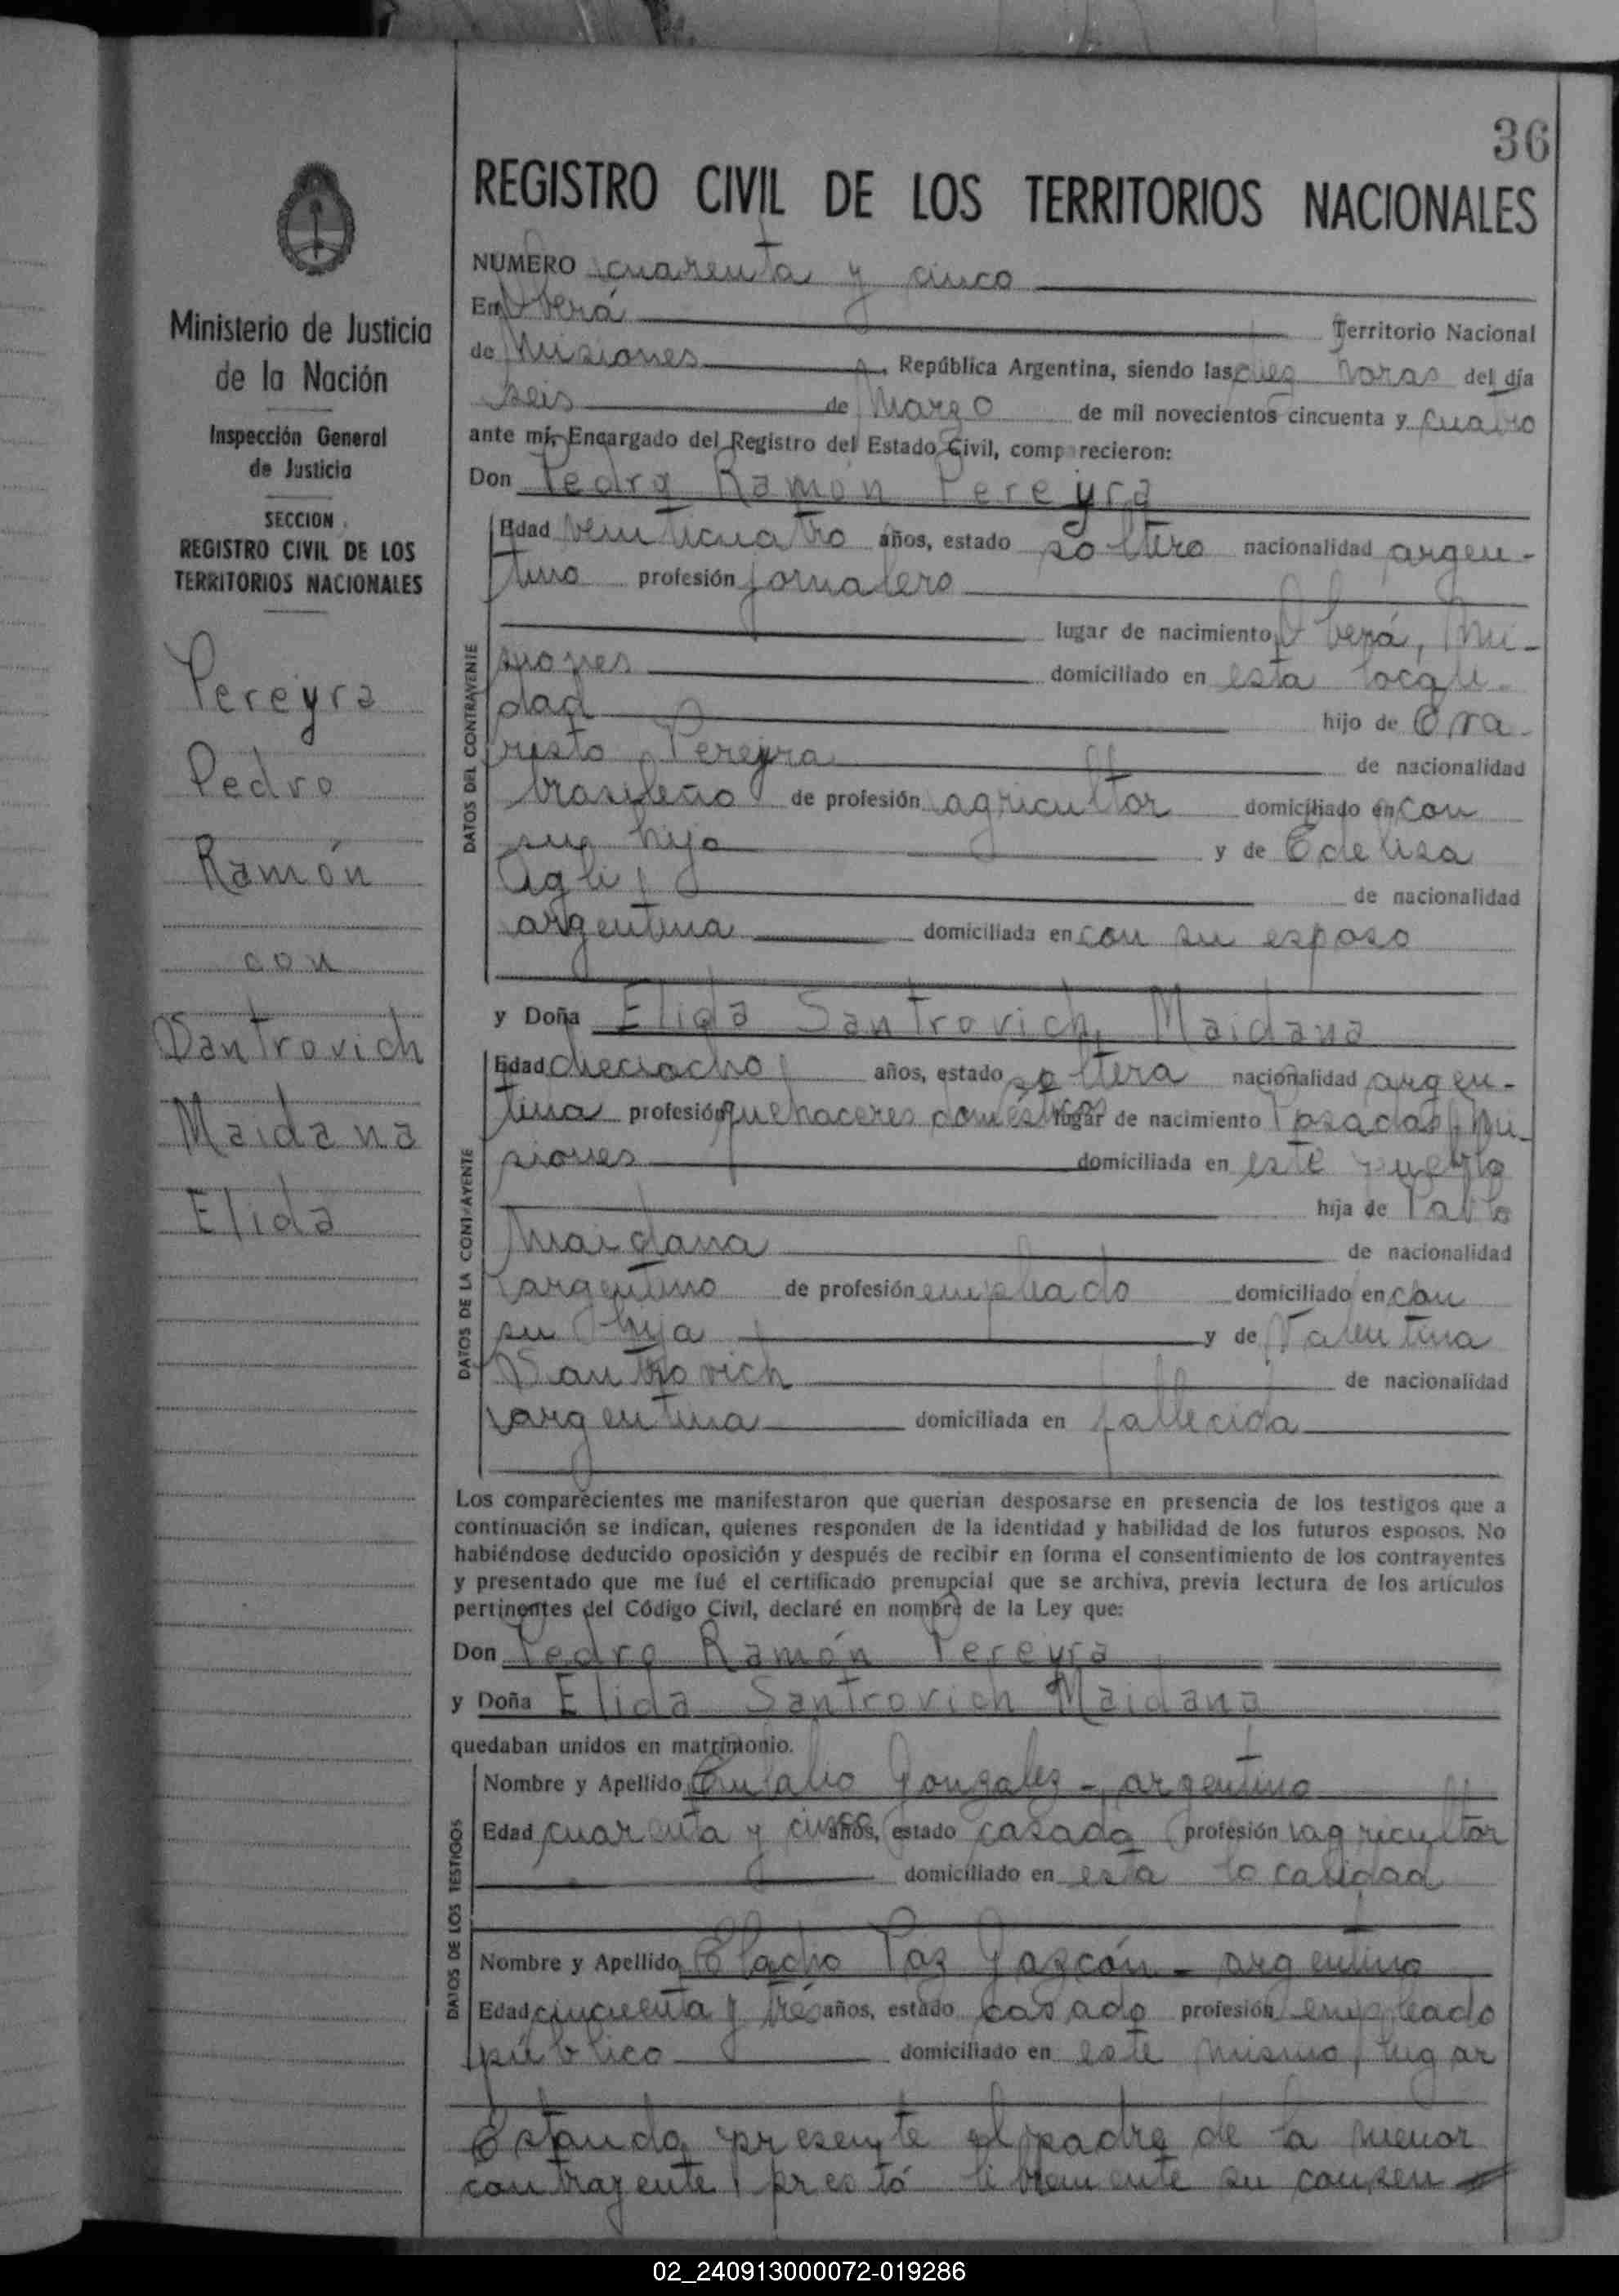 36
Ministerio de Justicia
de la Nación
Inspección General
de Justicia
SECCION
REGISTRO CIVIL DE LOS
TERRITORIOS NACIONALES
Pereyra
Pedro
Ramón
con
Santrovich
Maidana
Elida
REGISTRO CIVIL DE LOS TERRITORIOS NACIONALES
NUMERO cuarenta y cinco
En Oberá Territorio Nacional
de Misiones, República Argentina, siendo las diez horas del día
seis de Marzo de mil novecientos cincuenta y cuatro
ante mi, Encargado del Registro del Estado Civil, comparecieron:
Don Pedro Ramón Pereyra
DATOS DEL CONTRAYENTE
Edad veinticuatro años, estado soltero nacionalidad argen-
tino profesión jornalero
lugar de nacimiento Oberá, Mi-
siones domiciliado en esta locali-
dad hijo de
Pereyra de nacionalidad
brasileño de profesión agricultor domiciliado en con
su hijo y de Edelisa
de nacionalidad
argentina domiciliada en con su esposo
y Doña Elida Santrovich Maidana
DATOS DE LA CONTRAYENTE
Edad dieciocho años, estado soltera nacionalidad argen-
tina profesión quehaceres domésticos lugar de nacimiento Posadas, Mi-
siones domiciliada en este pueblo
hija de Pablo
Maidana de nacionalidad
argentino de profesión empleado domiciliado en con
su hija y de Valentina
Santrovich de nacionalidad
argentina domiciliada en fallecida
Los comparecientes me manifestaron que querían desposarse en presencia de los testigos que a
continuación se indican, quienes responden de la identidad y habilidad de los futuros esposos. No
habiéndose deducido oposición y después de recibir en forma el consentimiento de los contrayentes
y presentado que me fué el certificado prenupcial que se archiva, previa lectura de los artículos
pertinentes del Código Civil, declaré en nombre de la Ley que:
Don Pedro Ramón Pereyra
y Doña Elida Santrovich Maidana
quedaban unidos en matrimonio.
DATOS DE LOS TESTIGOS
Nombre y Apellido Eulalio Gonzalez - argentino
Edad cuarenta y cinco años, estado casado profesión agricultor
domiciliado en esta localidad
Nombre y Apellido Eladio Paz Gazcón - argentino
Edad cincuenta y tres años, estado casado profesión empleado
público domiciliado en este mismo lugar
Estando presente el padre de la menor
contrayente, prestó libremente su consen-
02_240913000072-019286